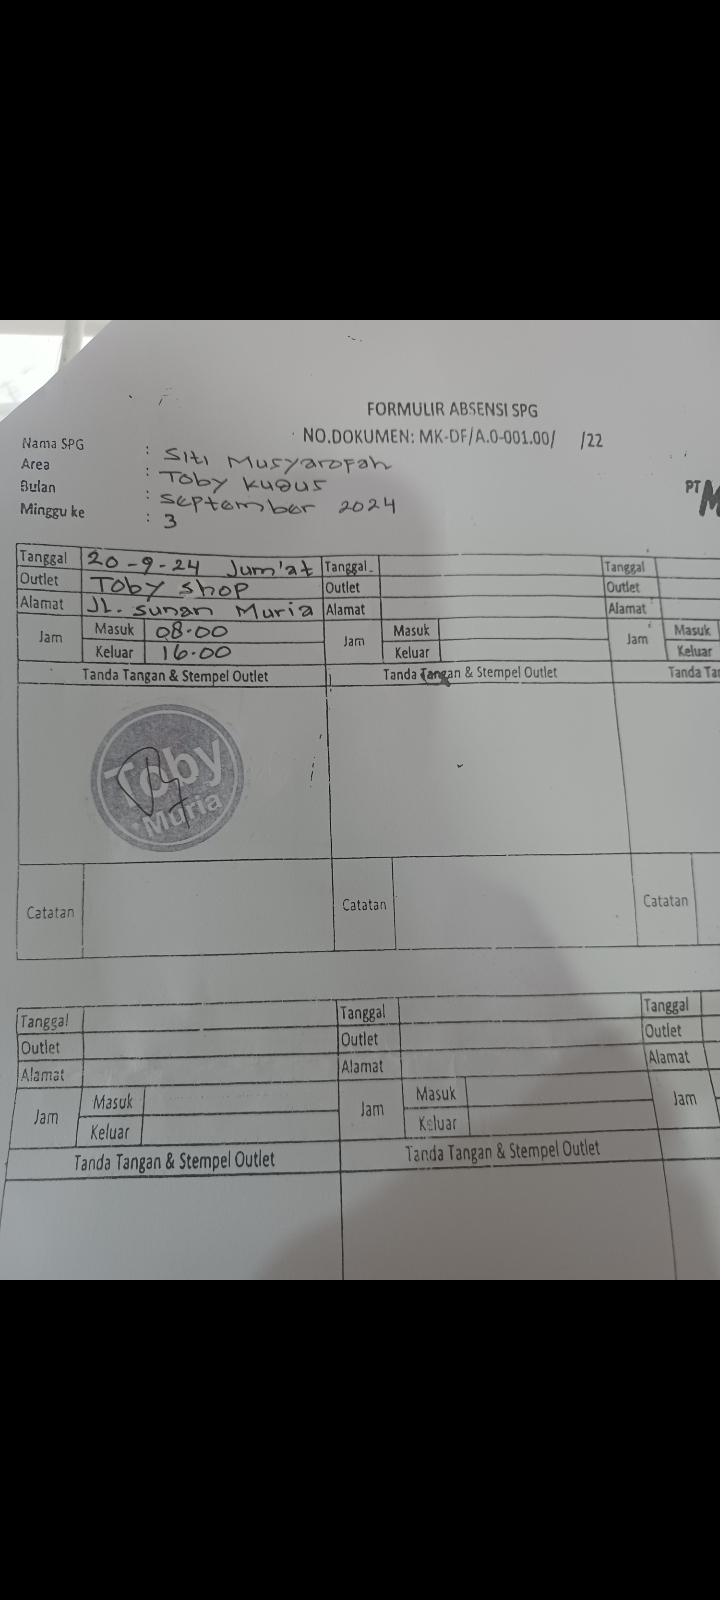 FORMULIR ABSENSI SPG
NO.DOKUMEN: MK-DF/A.0-001.00/ /22
Nama SPG : Siti Musyarofah
Area : Toby Kudus
Bulan : September 2024
Minggu ke : 3
PT M
Tanggal 20-9-24 Jum'at Tanggal Tanggal
Outlet Toby shop Outlet Outlet
Alamat JL. sunan Muria Alamat Alamat
Jam Masuk 08.00 Jam Masuk Jam Masuk
Keluar 16.00 Keluar Keluar
Tanda Tangan & Stempel Outlet Tanda Tangan & Stempel Outlet Tanda Ta
Toby
Muria
Catatan Catatan Catatan
Tanggal Tanggal Tanggal
Outlet Outlet Outlet
Alamat Alamat Alamat
Jam Masuk Jam Masuk Jam
Keluar Keluar
Tanda Tangan & Stempel Outlet Tanda Tangan & Stempel Outlet